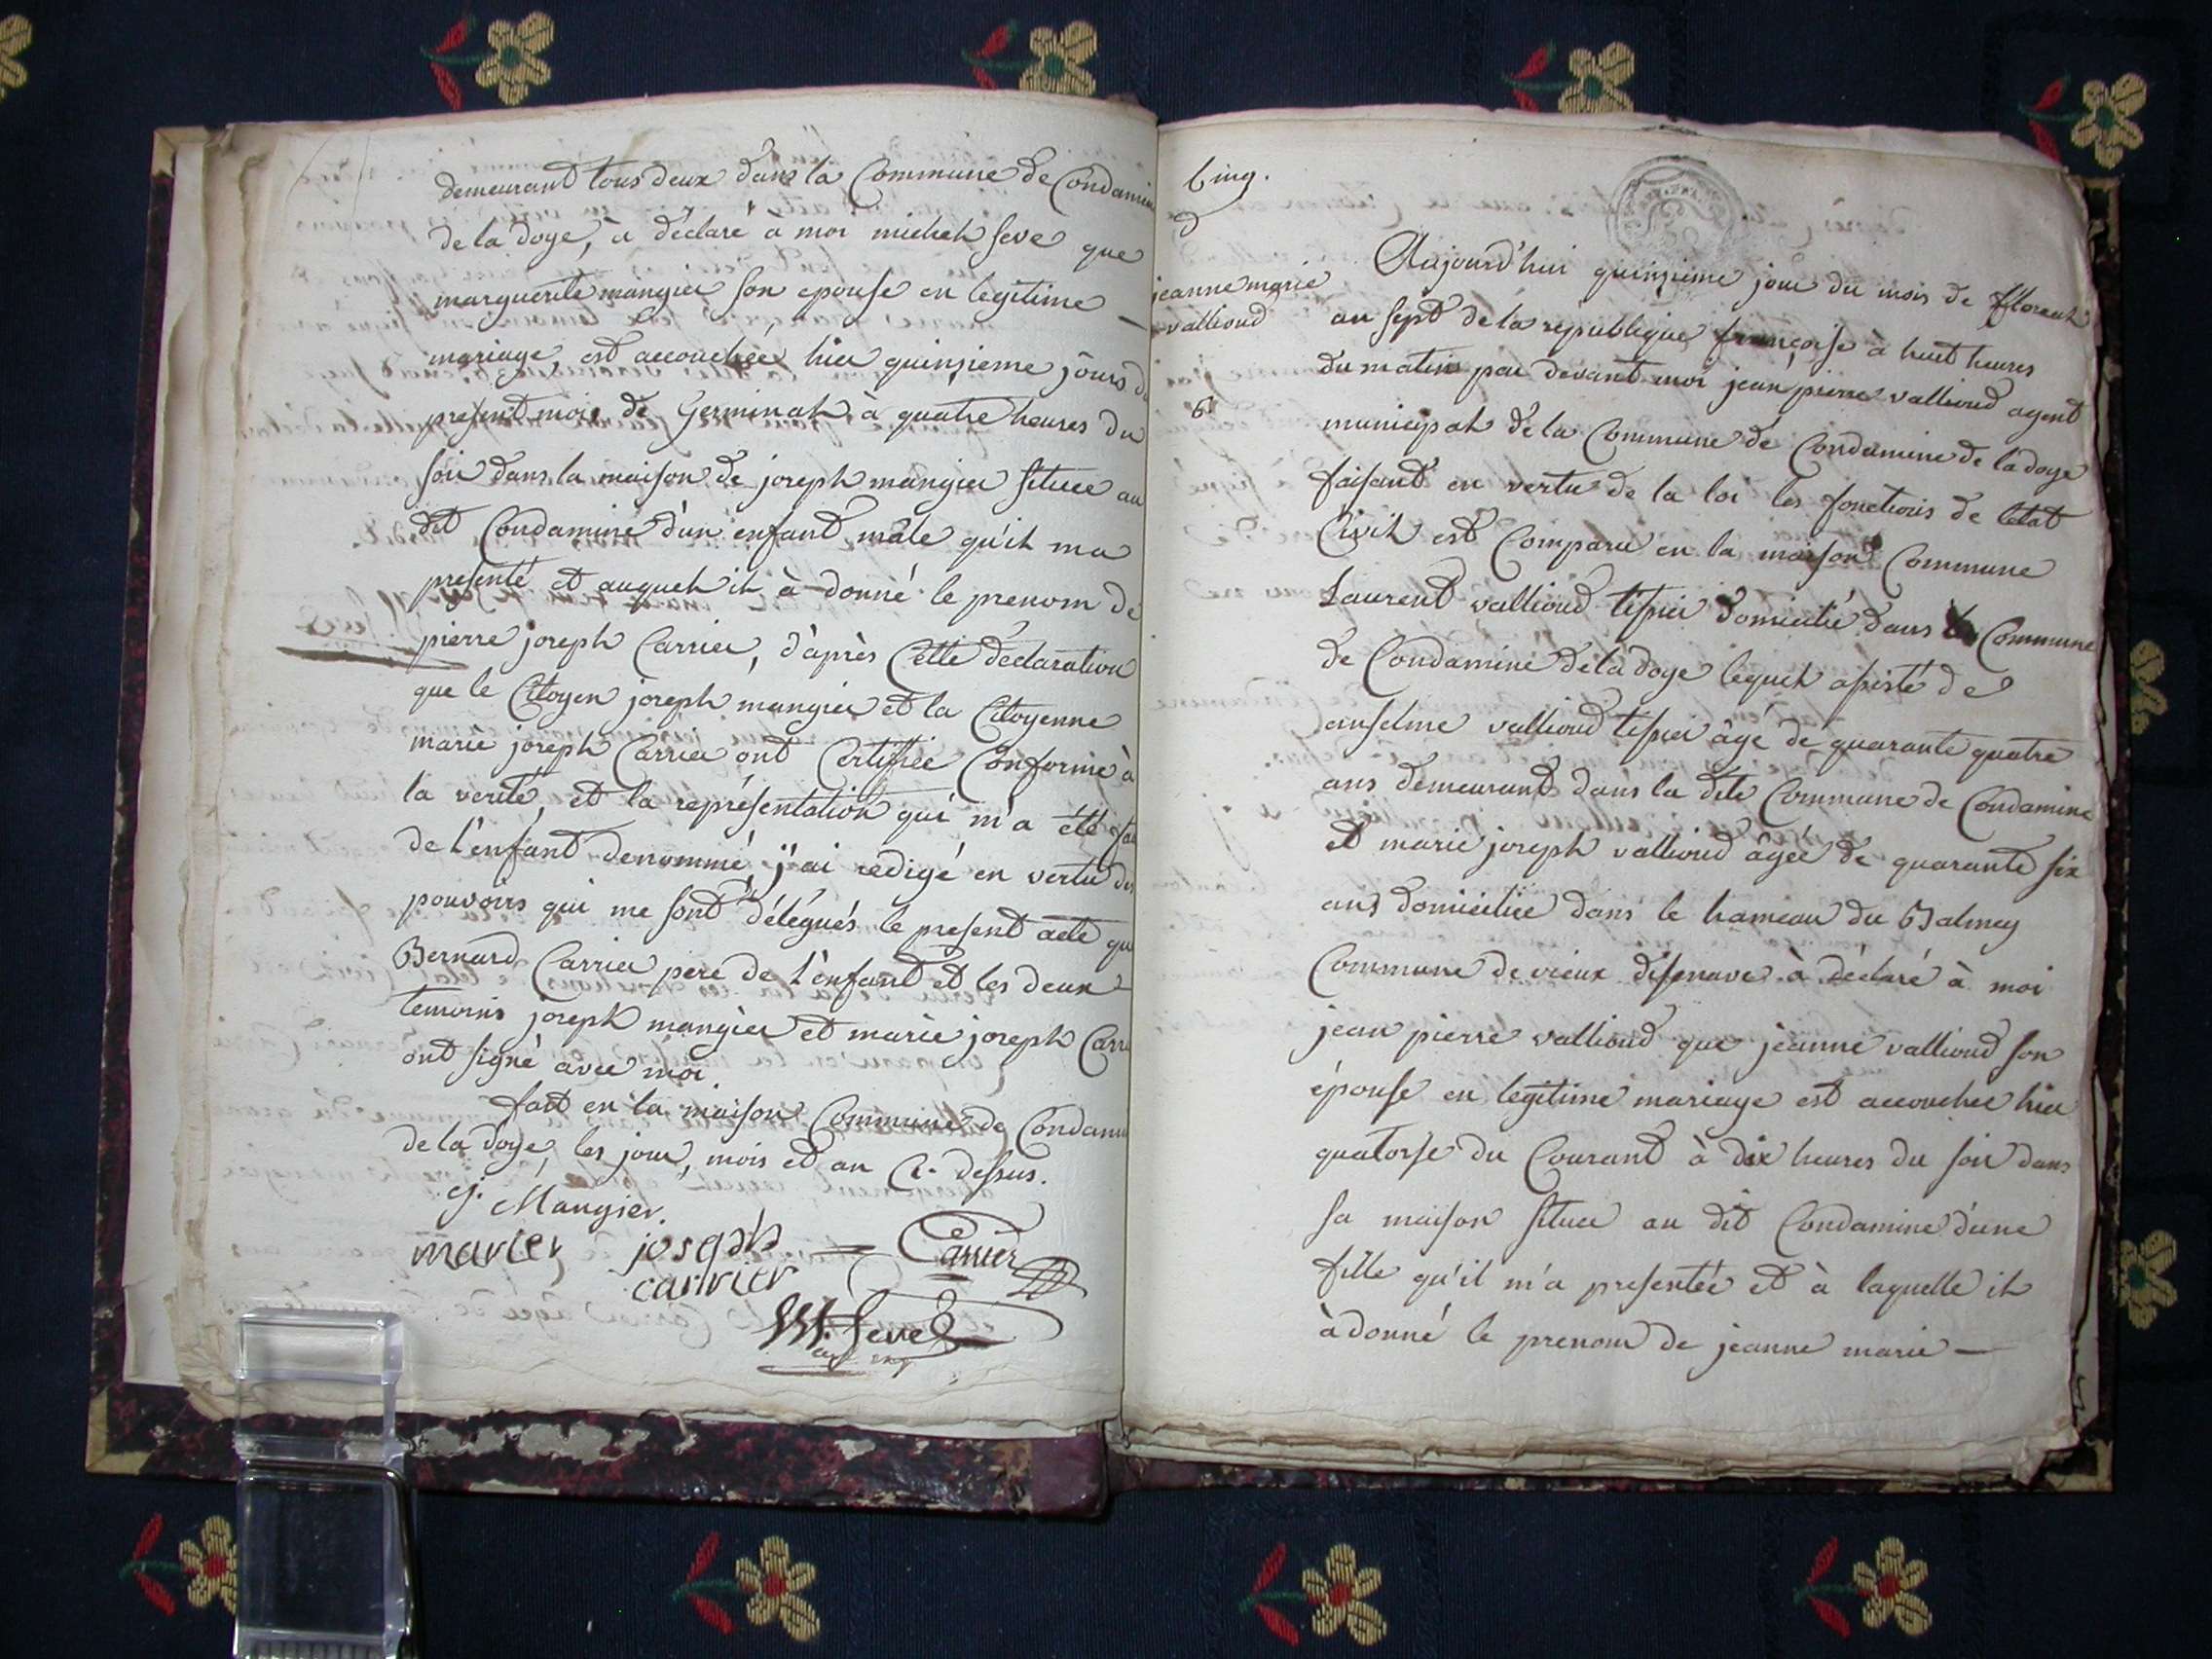 demeurant tous deux dans la Commune de Condamine
de la doye, à déclaré à moi michel seve que
marguerite mangier son epouse en legitime
mariage, est accouchée hier quinzieme jours du
present mois de Germinal à quatre heures du
soir dans la maison de joseph mangier située au
dit Condamine d'un enfant mâle qu'il ma
presenté et auquel il à donné le prenom de
pierre joseph Carrier, d'après Cette declaration
que le Citoyen joseph mangier et la Citoyenne
marie joseph Carrier ont Certifiée Conforme à
la verité, et la représentation qui m'a été fai
de l'enfant denommé, j'ai redigé en vertu des
pouvoirs qui me sont délégués le present acte que
Bernard Carrier pere de l'enfant et les deux
temoins joseph mangier et marie joseph Carri
ont signé avec moi.
fait en la maison Commune de Condami
de la doye, les jour, mois et an Ci-dessus.
j. Mangier.
marier joseph Carrier
carrier
M. Seve
Cinq.
jeanne marie
vallioud
6
Aujourd'hui quinzieme jour du mois de floreal
an sept de la republique françoise à huit heures
du matin par devant moi jean pierre vallioud agent
municipal de la Commune de Condamine de la doye
faisant en vertu de la loi les fonctions de letat
Civil est Comparu en la maison Commune
Laurent vallioud tissier domicilié dans la Commune
de Condamine de la doye lequel assisté de
anselme vallioud tissier âgé de quarante quatre
ans demeurant dans la dite Commune de Condamine
et marie joseph vallioud âgée de quarante six
ans domiciliée dans le hameau du Balmey
Commune de vieux disenave à déclaré à moi
jean pierre vallioud que jeanne vallioud son
épouse en legitime mariage est accouchée hier
quatorse du Courant à dix heures du soir dans
sa maison située au dit Condamine d'une
fille qu'il m'a presentée et à laquelle il
à donné le prenom de jeanne marie —